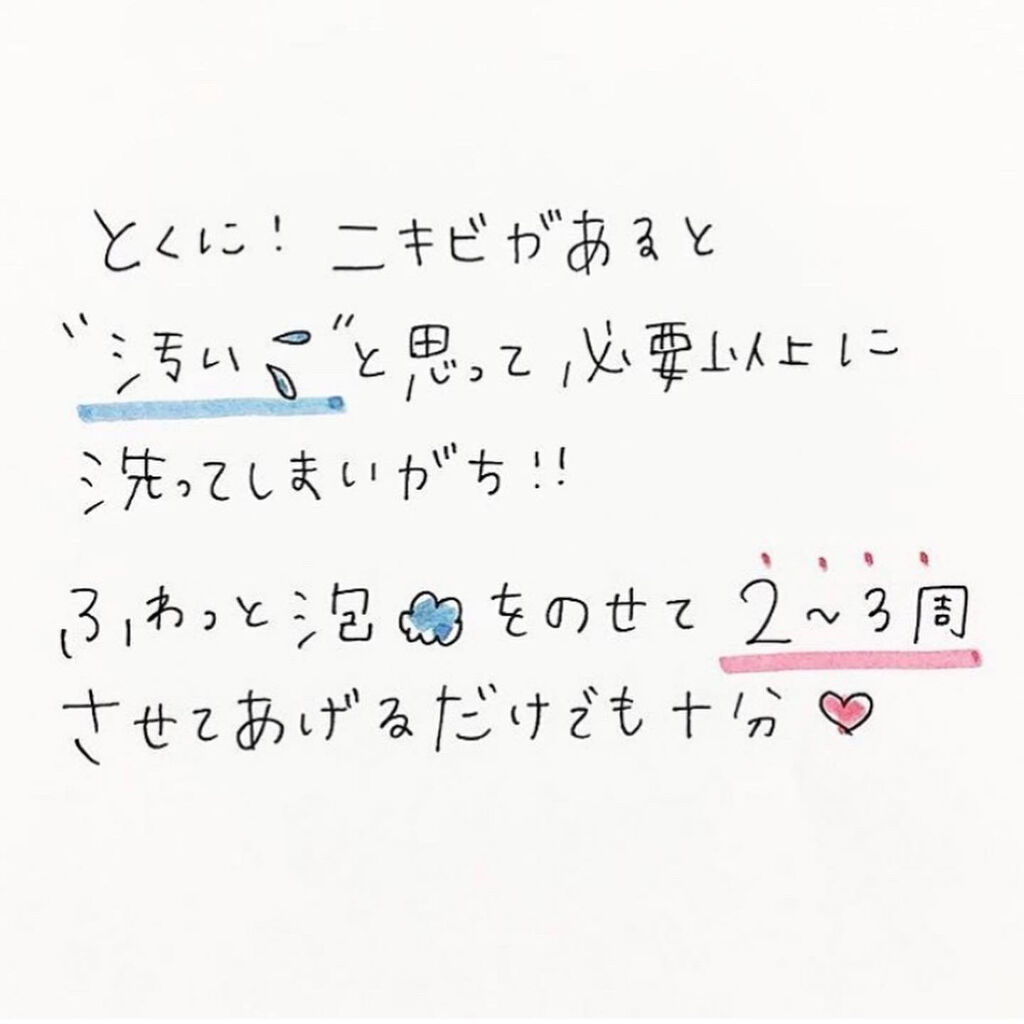 とくに! ニキビがあると
"汚い"と思って、必要以上に
洗ってしまいがち!!
ふわっと泡をのせて 2~3周
させてあげるだけでも十分